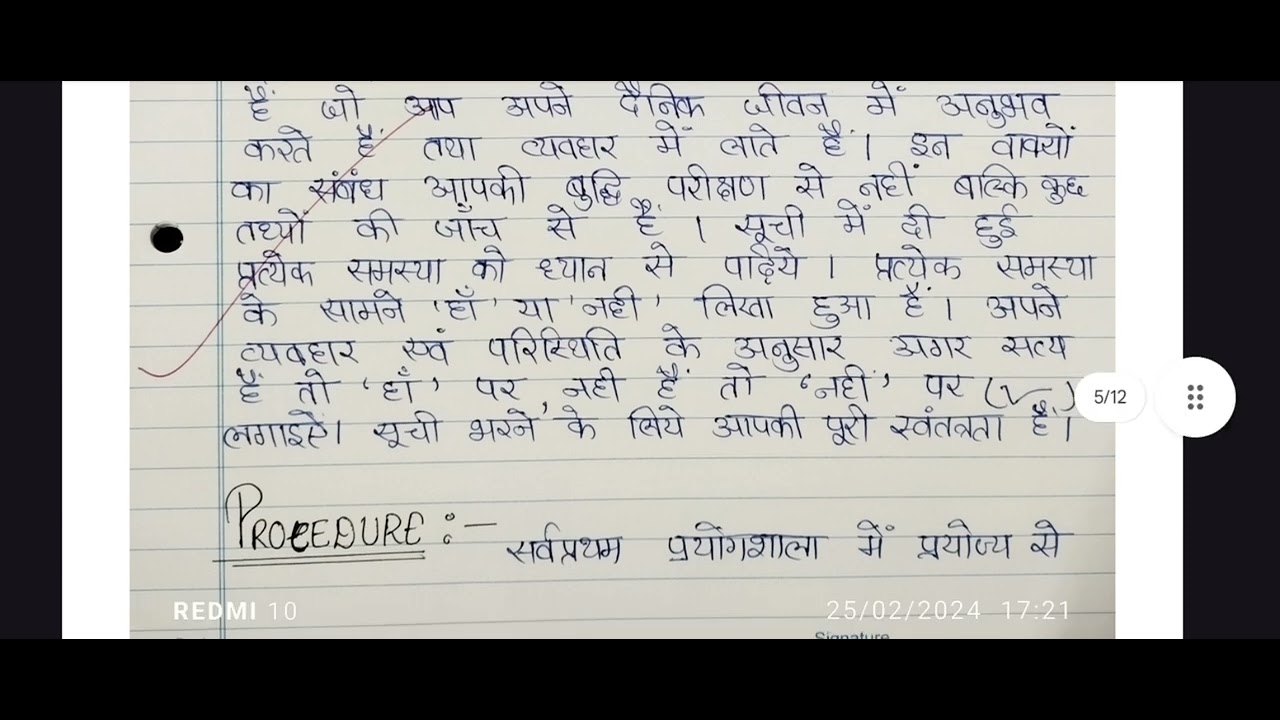 हैं जो आप अपने दैनिक जीवन में अनुभव
करते हैं तथा व्यवहार में लाते हैं। इन वाक्यों
का संबंध आपकी बुद्धि परीक्षण से नहीं बल्कि कुछ
तथ्यों की जाँच से हैं। सूची में दी हुई
प्रत्येक समस्या को ध्यान से पढ़िये। प्रत्येक समस्या
के सामने 'हाँ' या 'नही' लिखा हुआ हैं। अपने
व्यवहार एवं परिस्थिति के अनुसार अगर सत्य
हैं तो 'हाँ' पर, नही हैं तो 'नही' पर (✓)
लगाइऐ। सूची भरने के लिये आपकी पूरी स्वंतत्रता हैं।
PROCEDURE :- सर्वप्रथम प्रयोगशाला में प्रयोज्य से
REDMI 10 25/02/2024 17:21
Signature
5/12